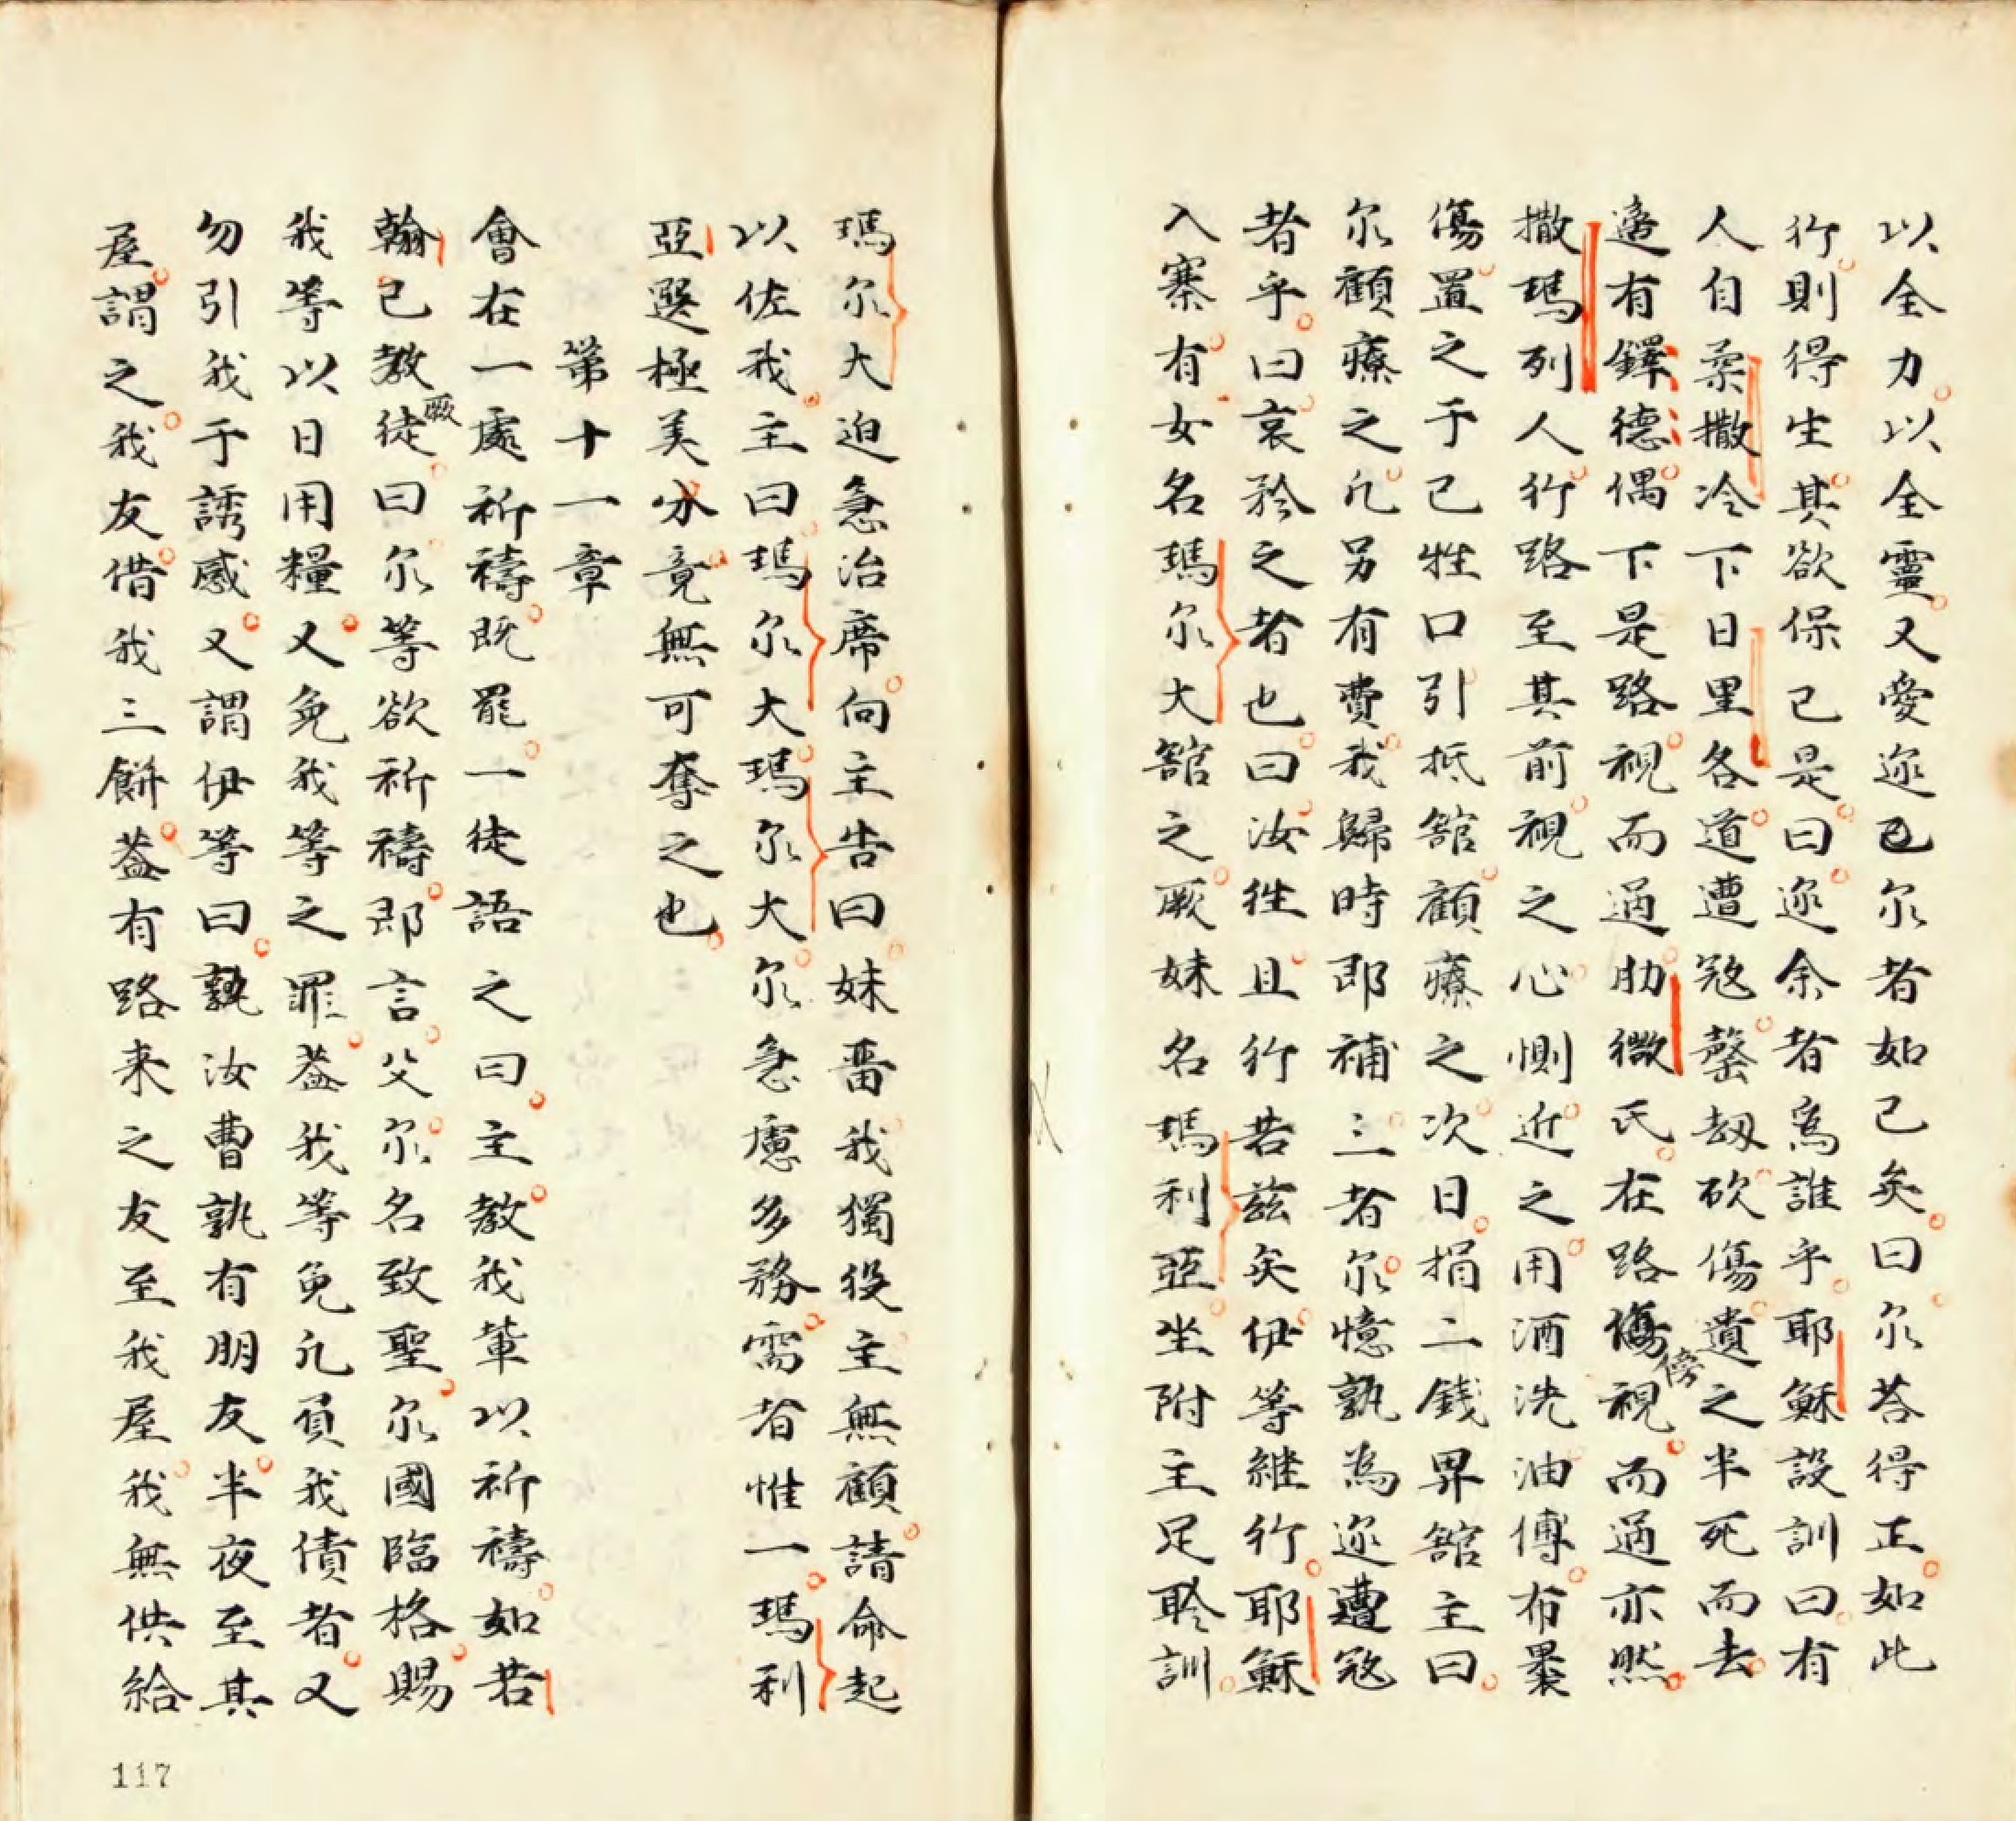 以全力以全靈又愛迩己尔者如己矣曰尔荅得正如此
行則得生其欲保己是曰迩余者為誰乎耶穌設訓曰有
人自柔撒冷下日里各道遭冦罄刼砍傷遺之半死而去
適有鐸德偶下是路視而過肋微氏在路傍視而過亦然
撒瑪列人行路至其前視之心惻近之用酒洗油傅布裹
傷置之于己牲口引抵舘顧療之次日捐二錢畀舘主曰
尔顧療之凢另有費我歸時即補三者尔憶孰為迩遭冦
者乎曰哀矜之者也曰汝徃且行若茲矣伊等継行耶穌
入寨有女名瑪尔大舘之厥妹名瑪利亞坐附主足聆訓
瑪尔大迫急治席向主告曰妹畱我獨役主無顧請命起
以佐我主曰瑪尔大瑪尔大尔急慮多務需者惟一瑪利
亞選極美分竟無可奪之也
第十一章
會在一處祈禱既罷一徒語之曰主教我輩以祈禱如若
翰已教厥徒曰尔等欲祈禱即言父尔名致聖尔國臨格賜
我等以日用糧又免我等之罪葢我等免凢負我債者又
勿引我于誘感又謂伊等曰孰汝曹孰有朋友半夜至其
屋謂之我友借我三餅葢有路来之友至我屋我無供給
117